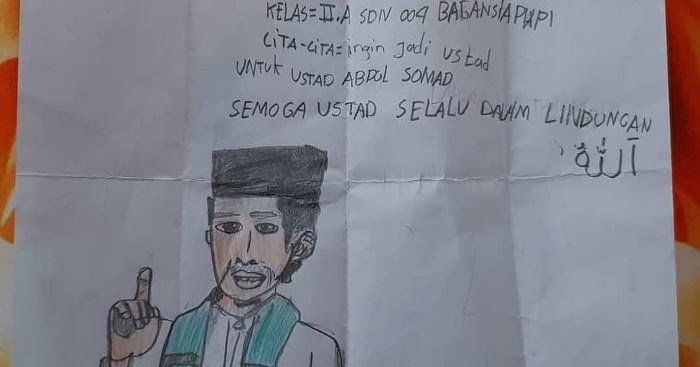 KELAS=II.A SDN 009 BAGANSIAPIAPI
CITA-CITA=ingin Jadi ustad
UNTUK USTAD ABDUL SOMAD
SEMOGA USTAD SELALU DALAM LINDUNGAN
الله